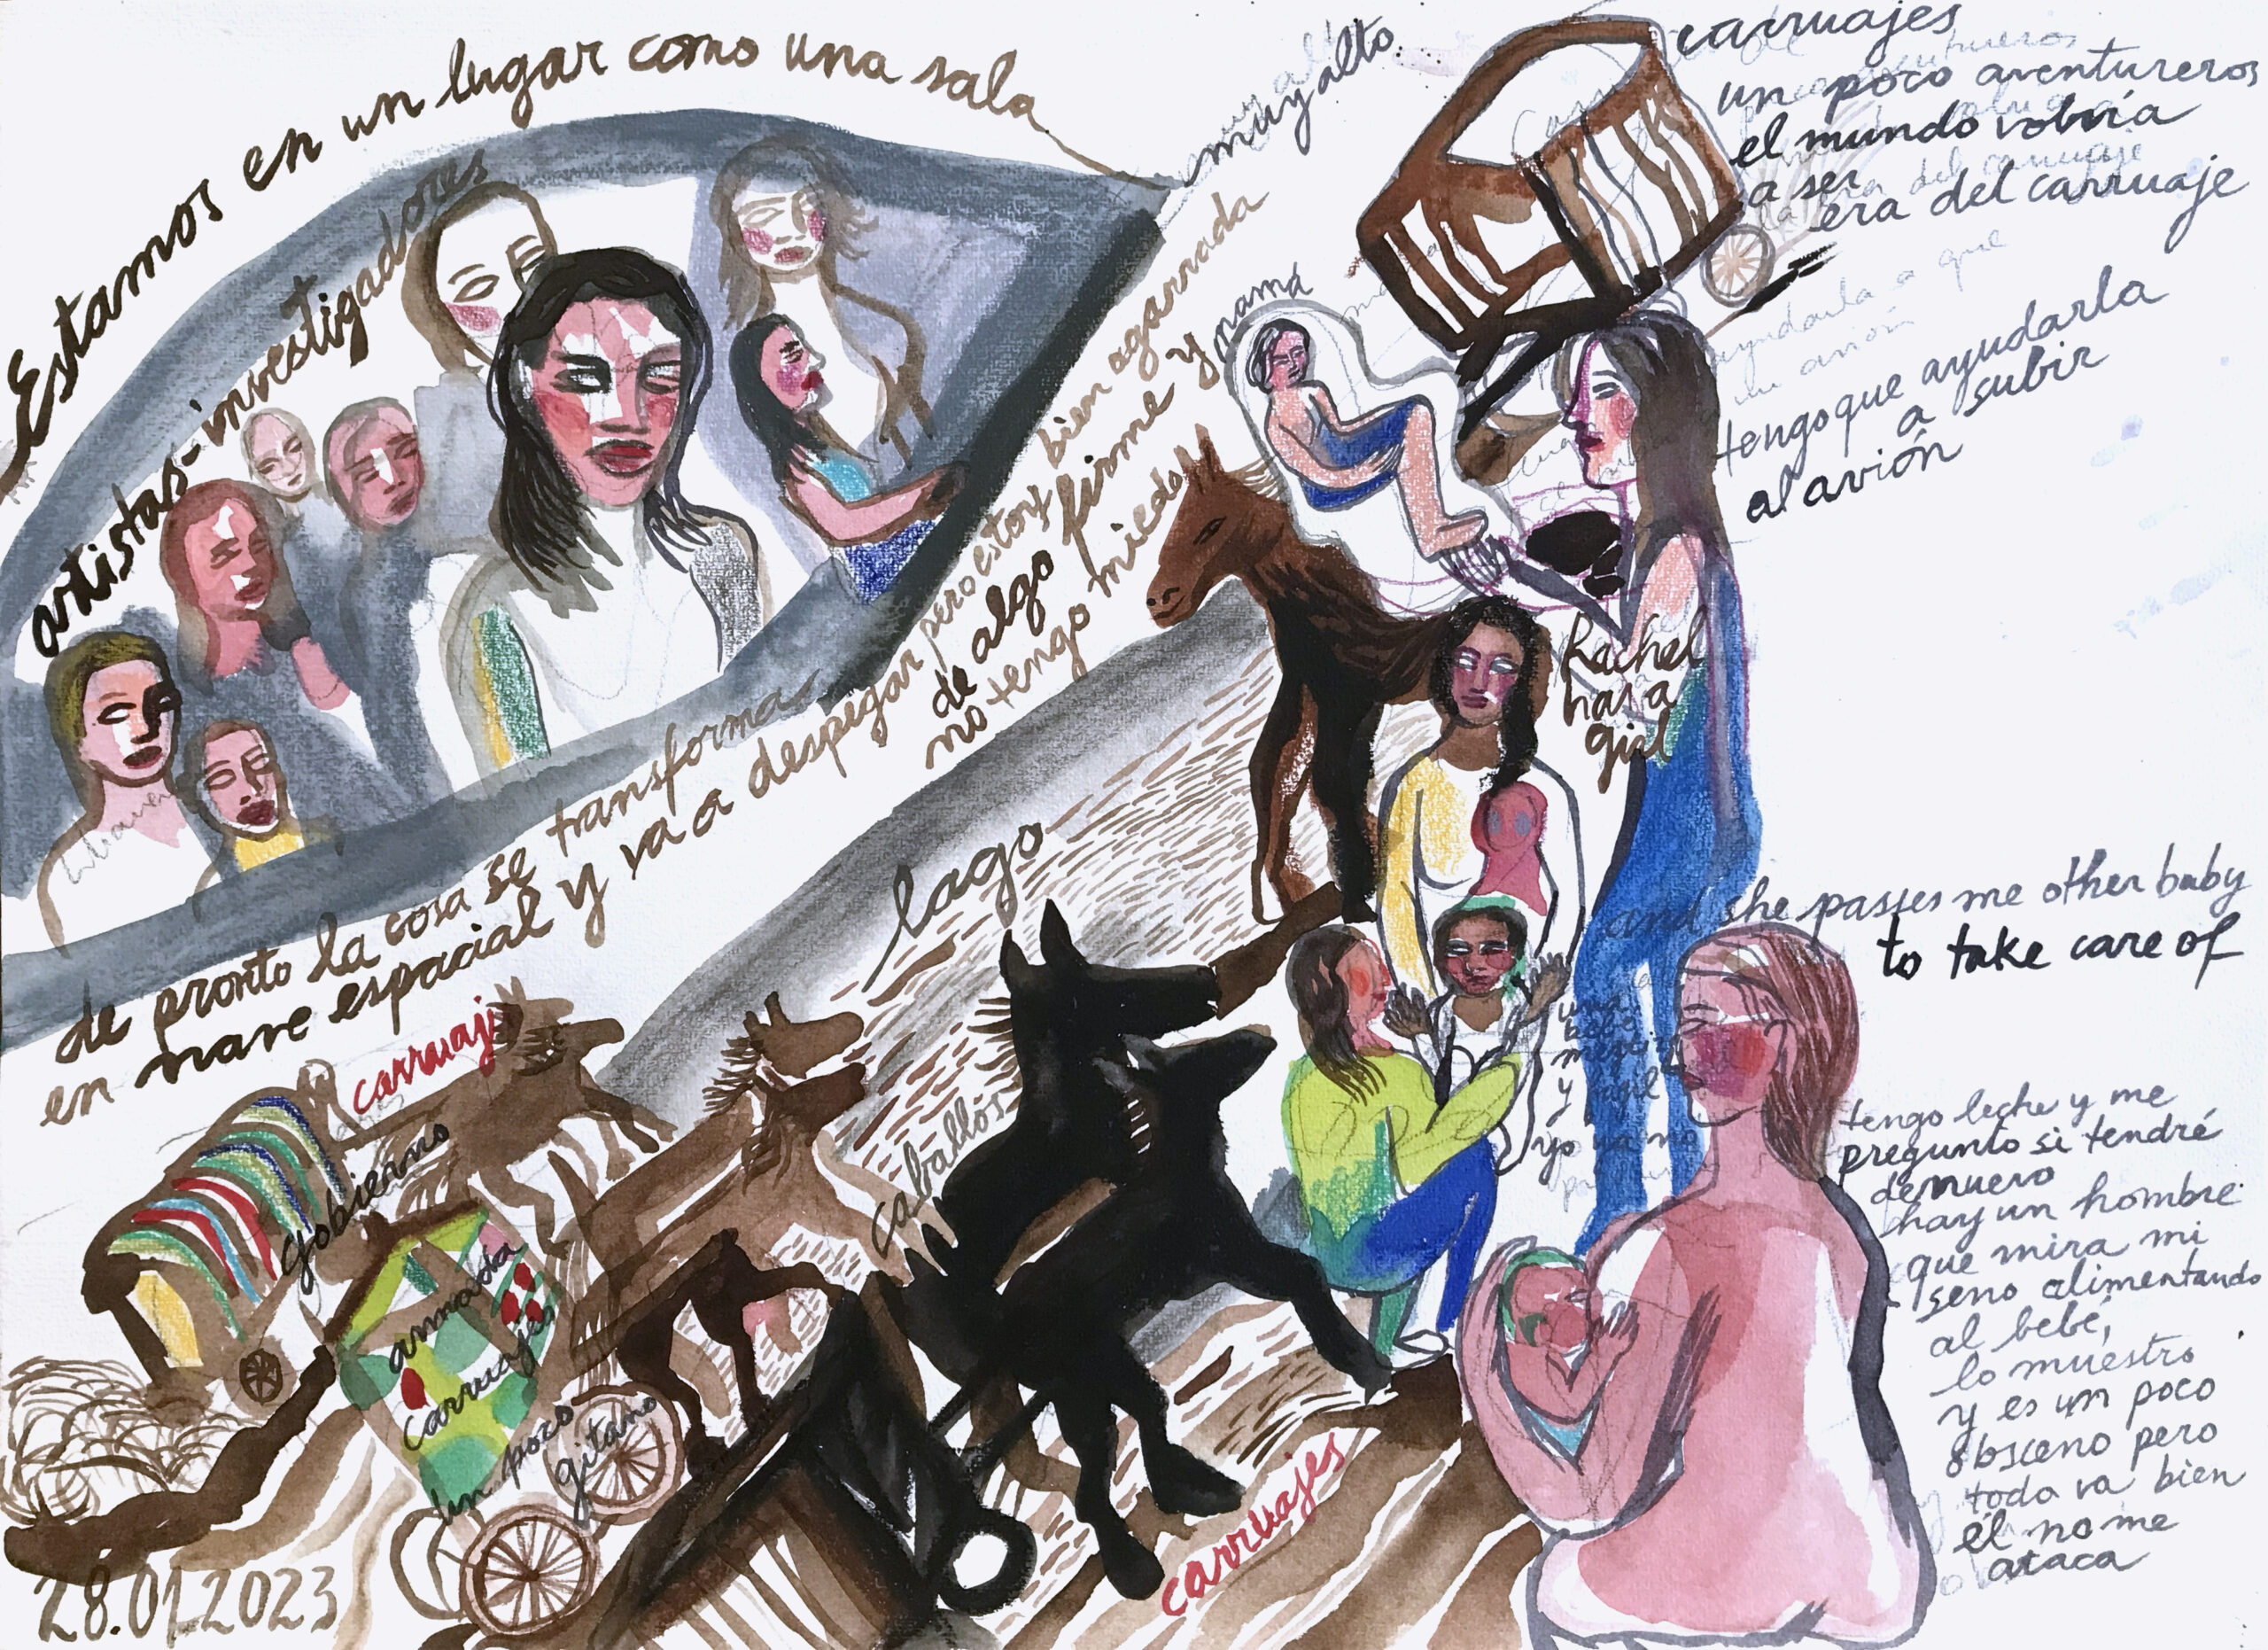 Estamos en un lugar como una sala
artistas-investigadores
de pronto la cosa se transforma
en nave espacial y va a despegar pero estoy bien agarrada
de algo firme y
no tengo miedo
muy alto
mamá
carruajes
un poco aventureros
el mundo volvría
a ser
era del carruaje
tengo que ayudarla
a subir
al avión
Rachel
has a
girl
and she passes me other baby
to take care of
una
beba
y
yo ya no
tengo leche y me
pregunto si tendré
de nuevo
hay un hombre
que mira mi
seno alimentando
al bebé,
lo muestro
y es un poco
obsceno pero
todo va bien
él no me
ataca
lago
caballos
carruajes
gobierno
armada
carruajes
un poco
gitano
carruajes
28.01.2023